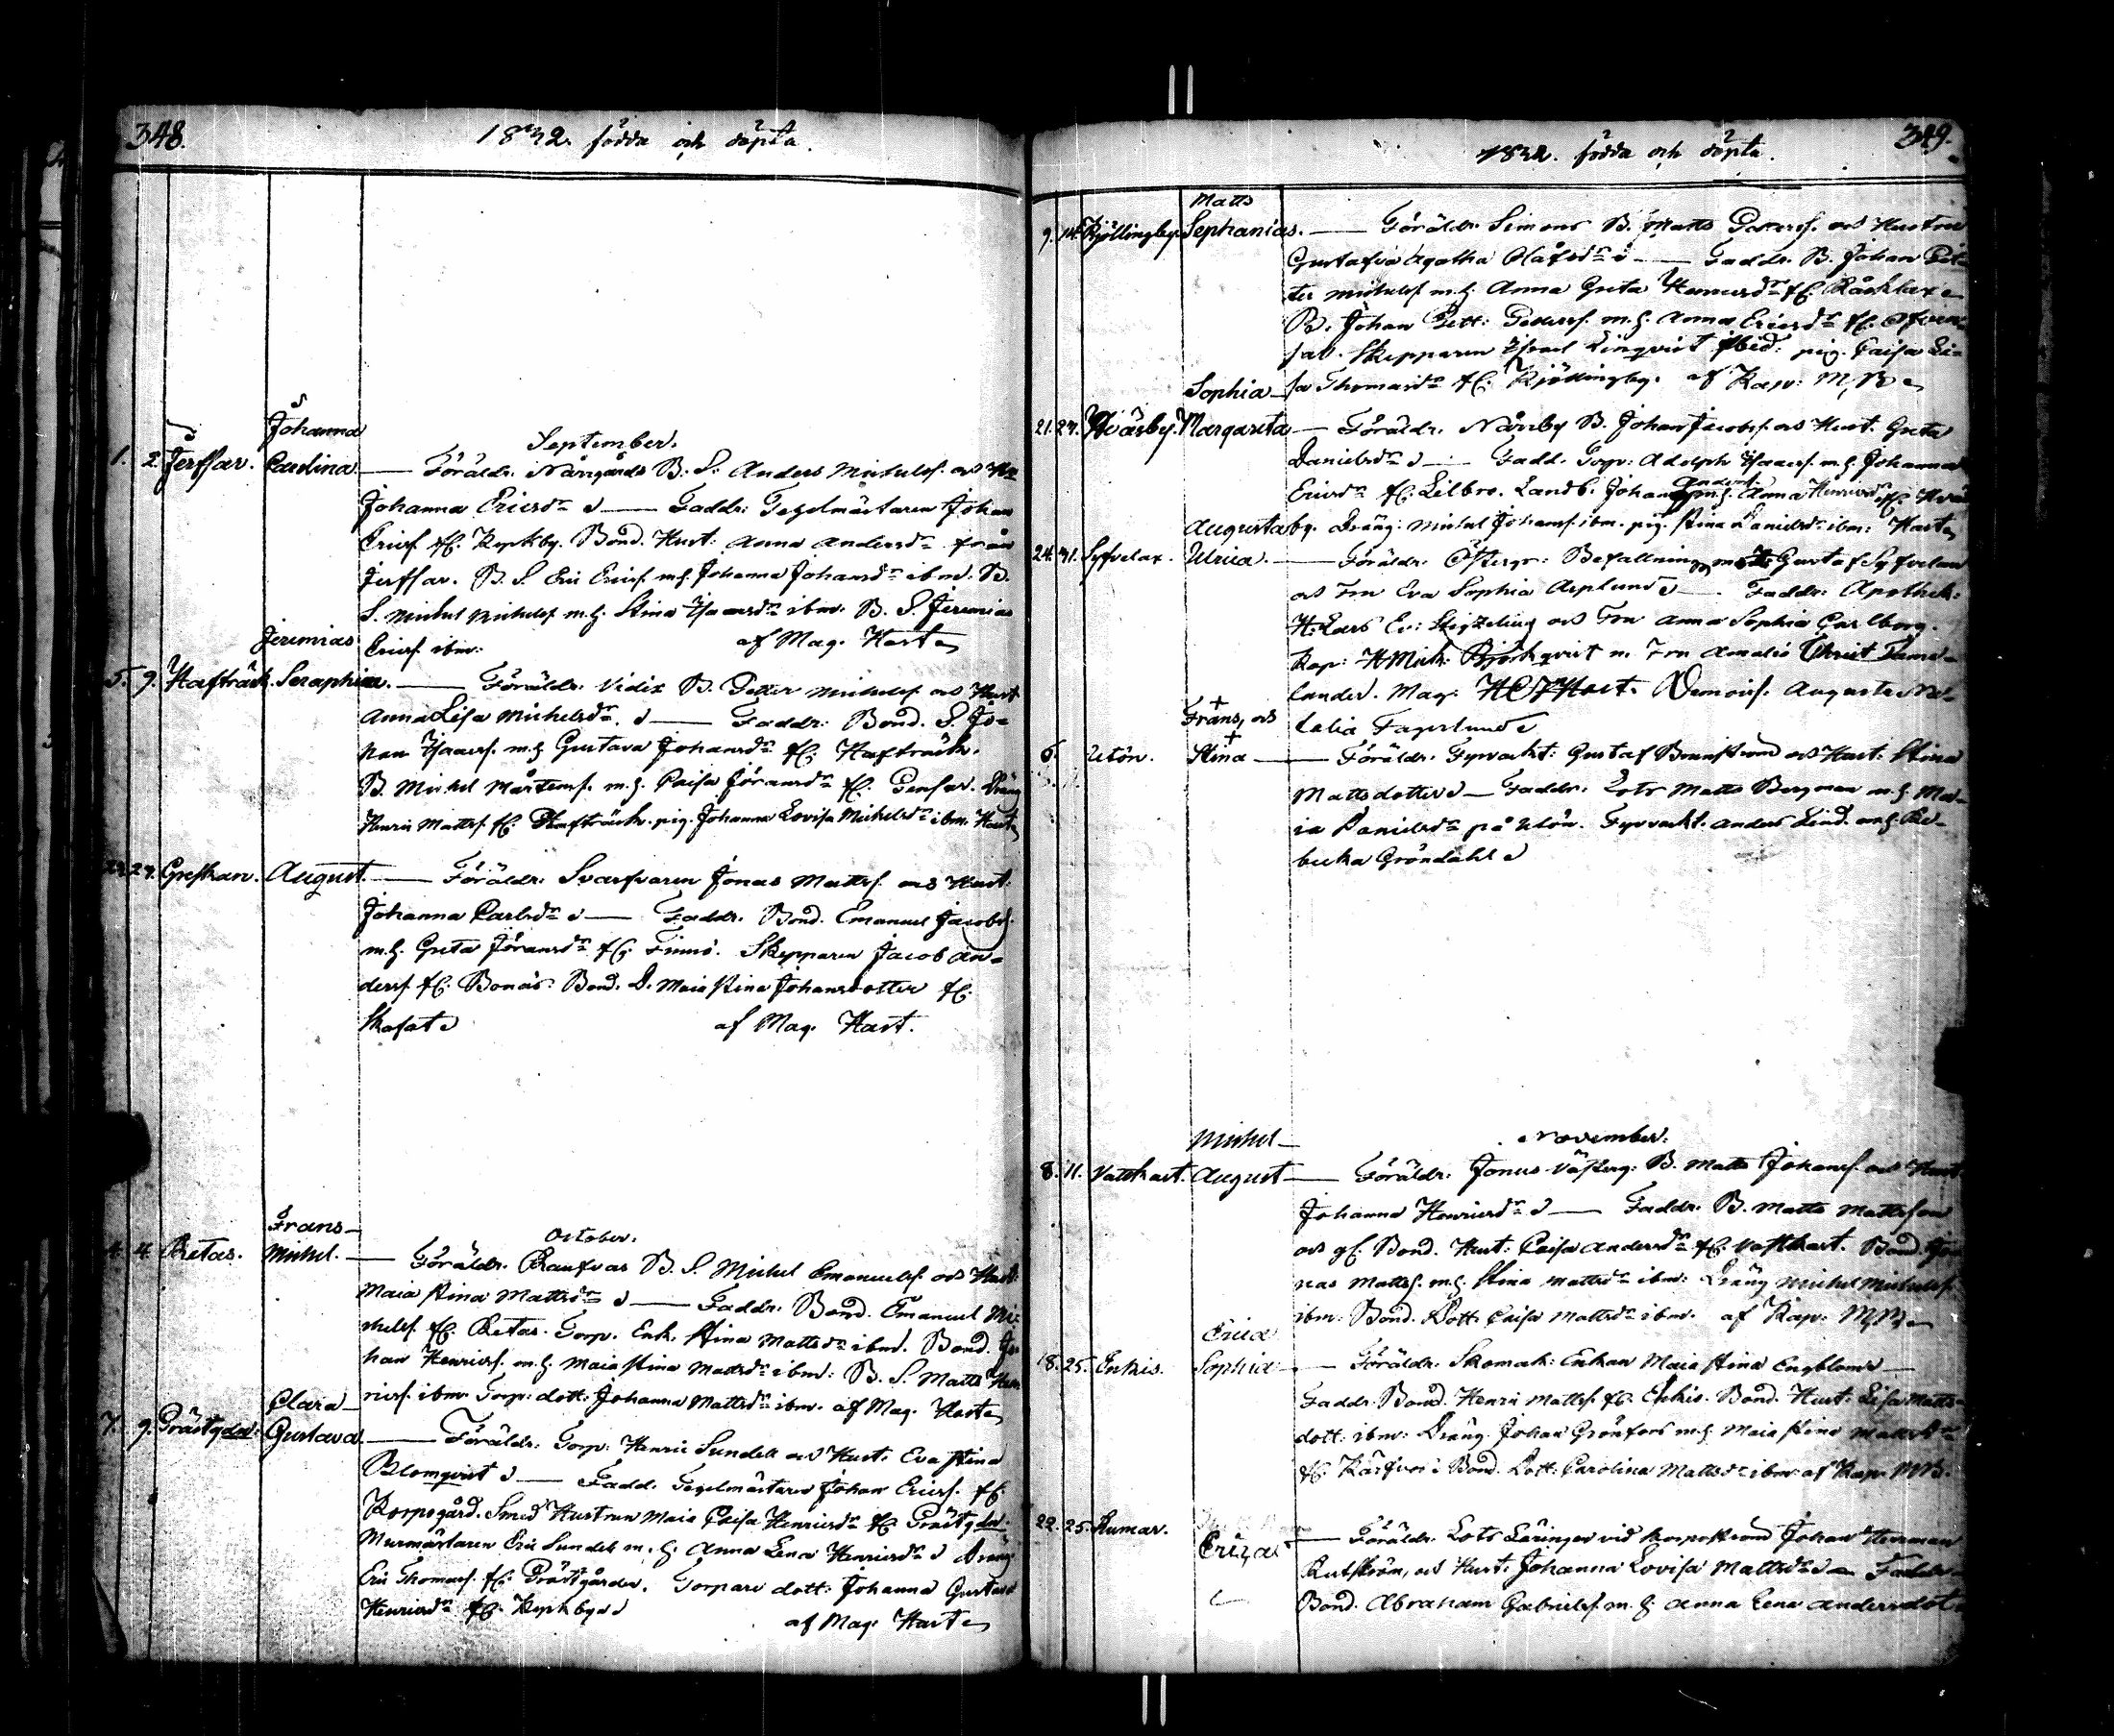 348.
1832. födda och döpta.
September.
1. 2. Jerssar. Johanna Carolina — Föräldr. Norrgårds B. S. Anders Michelss. och Hu
Johanna Ericsdr — Faddr: Tegelmästaren Johan
Ericss. fr. Kyrkby. Bond. Hust: Anna Andersdr från
Jerssar. B. S. Eric Ericss. m.h. Johanna Johansdr ibm. B.
S. Michel Michelss. m.h. Stina Isaacsdr ibm. B. S. Jeremias
Ericss. ibm: af Mag. Hast
5. 9. Hafträsk. Jeremias Seraphim. — Föräldr. Vidix B. Petter Michelss. och Hust
Anna Lisa Michelsdr. — Faddr: Bond. S. Jo-
han Isaacss. m.h. Gustava Johansdr fr. Hafträsk.
B. Michel Mårtenss. m.h. Caisa Jöransdr fr. Pensar. Dräng
Henric Mattss. fr. Hafträsk. pig. Johanna Lovisa Michelsdr ibm. Hast
27. Greskan. August. — Föräldr. Svarfvaren Jonas Mattss. och Hust.
Johanna Carlsdr — Faddr. Bond. Emanuel Jacobss.
m.h. Greta Jöransdr fr. Finnö. Skepparen Jacob An-
derss. fr. Bonäs. Bond. D. Maia Stina Johansdotter fr.
Skafat af Mag. Hast.
October.
4. 4. Retas. Frans Michel. — Föräldr. Raufvas B. S. Michel Emanuelss. och Hust
Maia Stina Mattsdr — Faddr. Bond. Emanuel Mi-
chelss. fr. Retas. Torp. Enk. Stina Mattsdr ibm. Bond. Jo
han Henricss. m.h. Maia Stina Mattsdr ibm: B. S. Matts Hen
ricss. ibm. Torp: dott: Johanna Mattsdr ibm. af Mag. Hast
7. 9. Prästgdn: Clara Gustava — Föräldr: Torp: Henric Sundell och Hust. Eva Stina
Blomqvist — Fadd. Tegelmästaren Johan Ericss. fr.
Korpogård. Smed Hustrun Maia Caisa Henricsdr fr. Prästgdn.
Murmästaren Eric Sundell m.h. Anna Lena Henricsdr Dräng
Eric Thomass. fr. Prästgården. Torpare dott: Johanna Gustava
Henricsdr fr. Kyrkby
af Mag. Hast
349.
1832. födda och döpta.
9. 14. Kjöllingby. Matts Sephanias. — Föräldr. Simons B. Matts Petterss. och Hustru
Gustafva Agatha Olafsdr — Faddr. B. Johan Pet-
ter Michelss. m.h. Anna Greta Hemersdr fr. Råsklax
B. Johan Pett: Petterss. m.h. Anna Ericsdr fr. Österu
Skepparen Israel Linqvist ibid: pig. Caisa Li-
sa Thomasdr fr. Kjöllingby. af Kap: M. B.
21. 27. Wäsby. Sophia Margareta — Föräldr. Norrby B. Johan Jacobss. och Hust. Greta
Danielsdr — Fadd. Torp: Adolph Isaacss. m.h. Johanna
Ericsdr fr. Lilbro. Landb. Johan Anderss. m.h. Anna Henricsdr fr.
by. Dräng: Michel Johanss. ibm. pig. Stina Danielsdr ibm: Hast
24. 31. Syfvelax. Augusta Ulrica. — Föräldr. Österg: Befallningsm. Gustaf Syfvelan
och Fru Eva Sophia Asplund — Faddr: Apothek:
H. Lars Er: och Fru Anna Sophia Carlborg.
Kap: H. Mich: Björkqvist m. Fru Amalia Christ. Tame-
lander. Mag: Hast. Demois. Augusta Na-
talia Fagerlund
6. Utön. Frans, och Stina — Föräldr. Fyrvakt: Gustaf Brunström och Hust. Stina
Mattsdotter — Faddr: Lots Matts Bergman m.h. Ma-
ia Danielsdr på Utön. Fyrvakt. Anders Lind. m.h. Re-
becka Gröndahl
November.
8. 11. Vattkast. Michel August — Föräldr: Jonus Västerg: B. Matts Johanss. och Hust
Johanna Henricsdr — Faddr. B. Matts Mattsson
och gl. Bond. Hust: Caisa Andersdr fr. Vattkast. Bond. Jo
nas Mattss. m.h. Stina Mattsdr ibm: Dräng Michel Michelss.
ibm: Bond. Dott. Caisa Mattsdr ibm. af Kap: M. B.
18. 25. Enkis. Erica Sophia — Föräldr. Skomak: Enkan Maia Stina Engblom
Faddr. Bond. Henric Mattss. fr. Enkis. Bond. Hust: Lisa Matts-
dott: ibm: Dräng Johan Grönfors m.h. Maia Stina Mattsdr
fr. Kärfvas: Bond. Dott. Carolina Mattsdr ibm: af Kap. M. B.
22. 25. Rumar. Erica — Föräldr. Lots Läringen vid Korpoström Johan Herman
Rutström, och Hust: Johanna Lovisa Mattsdr — Faddr
Bond. Abraham Gabrielss. m.h. Anna Lena Andersdot